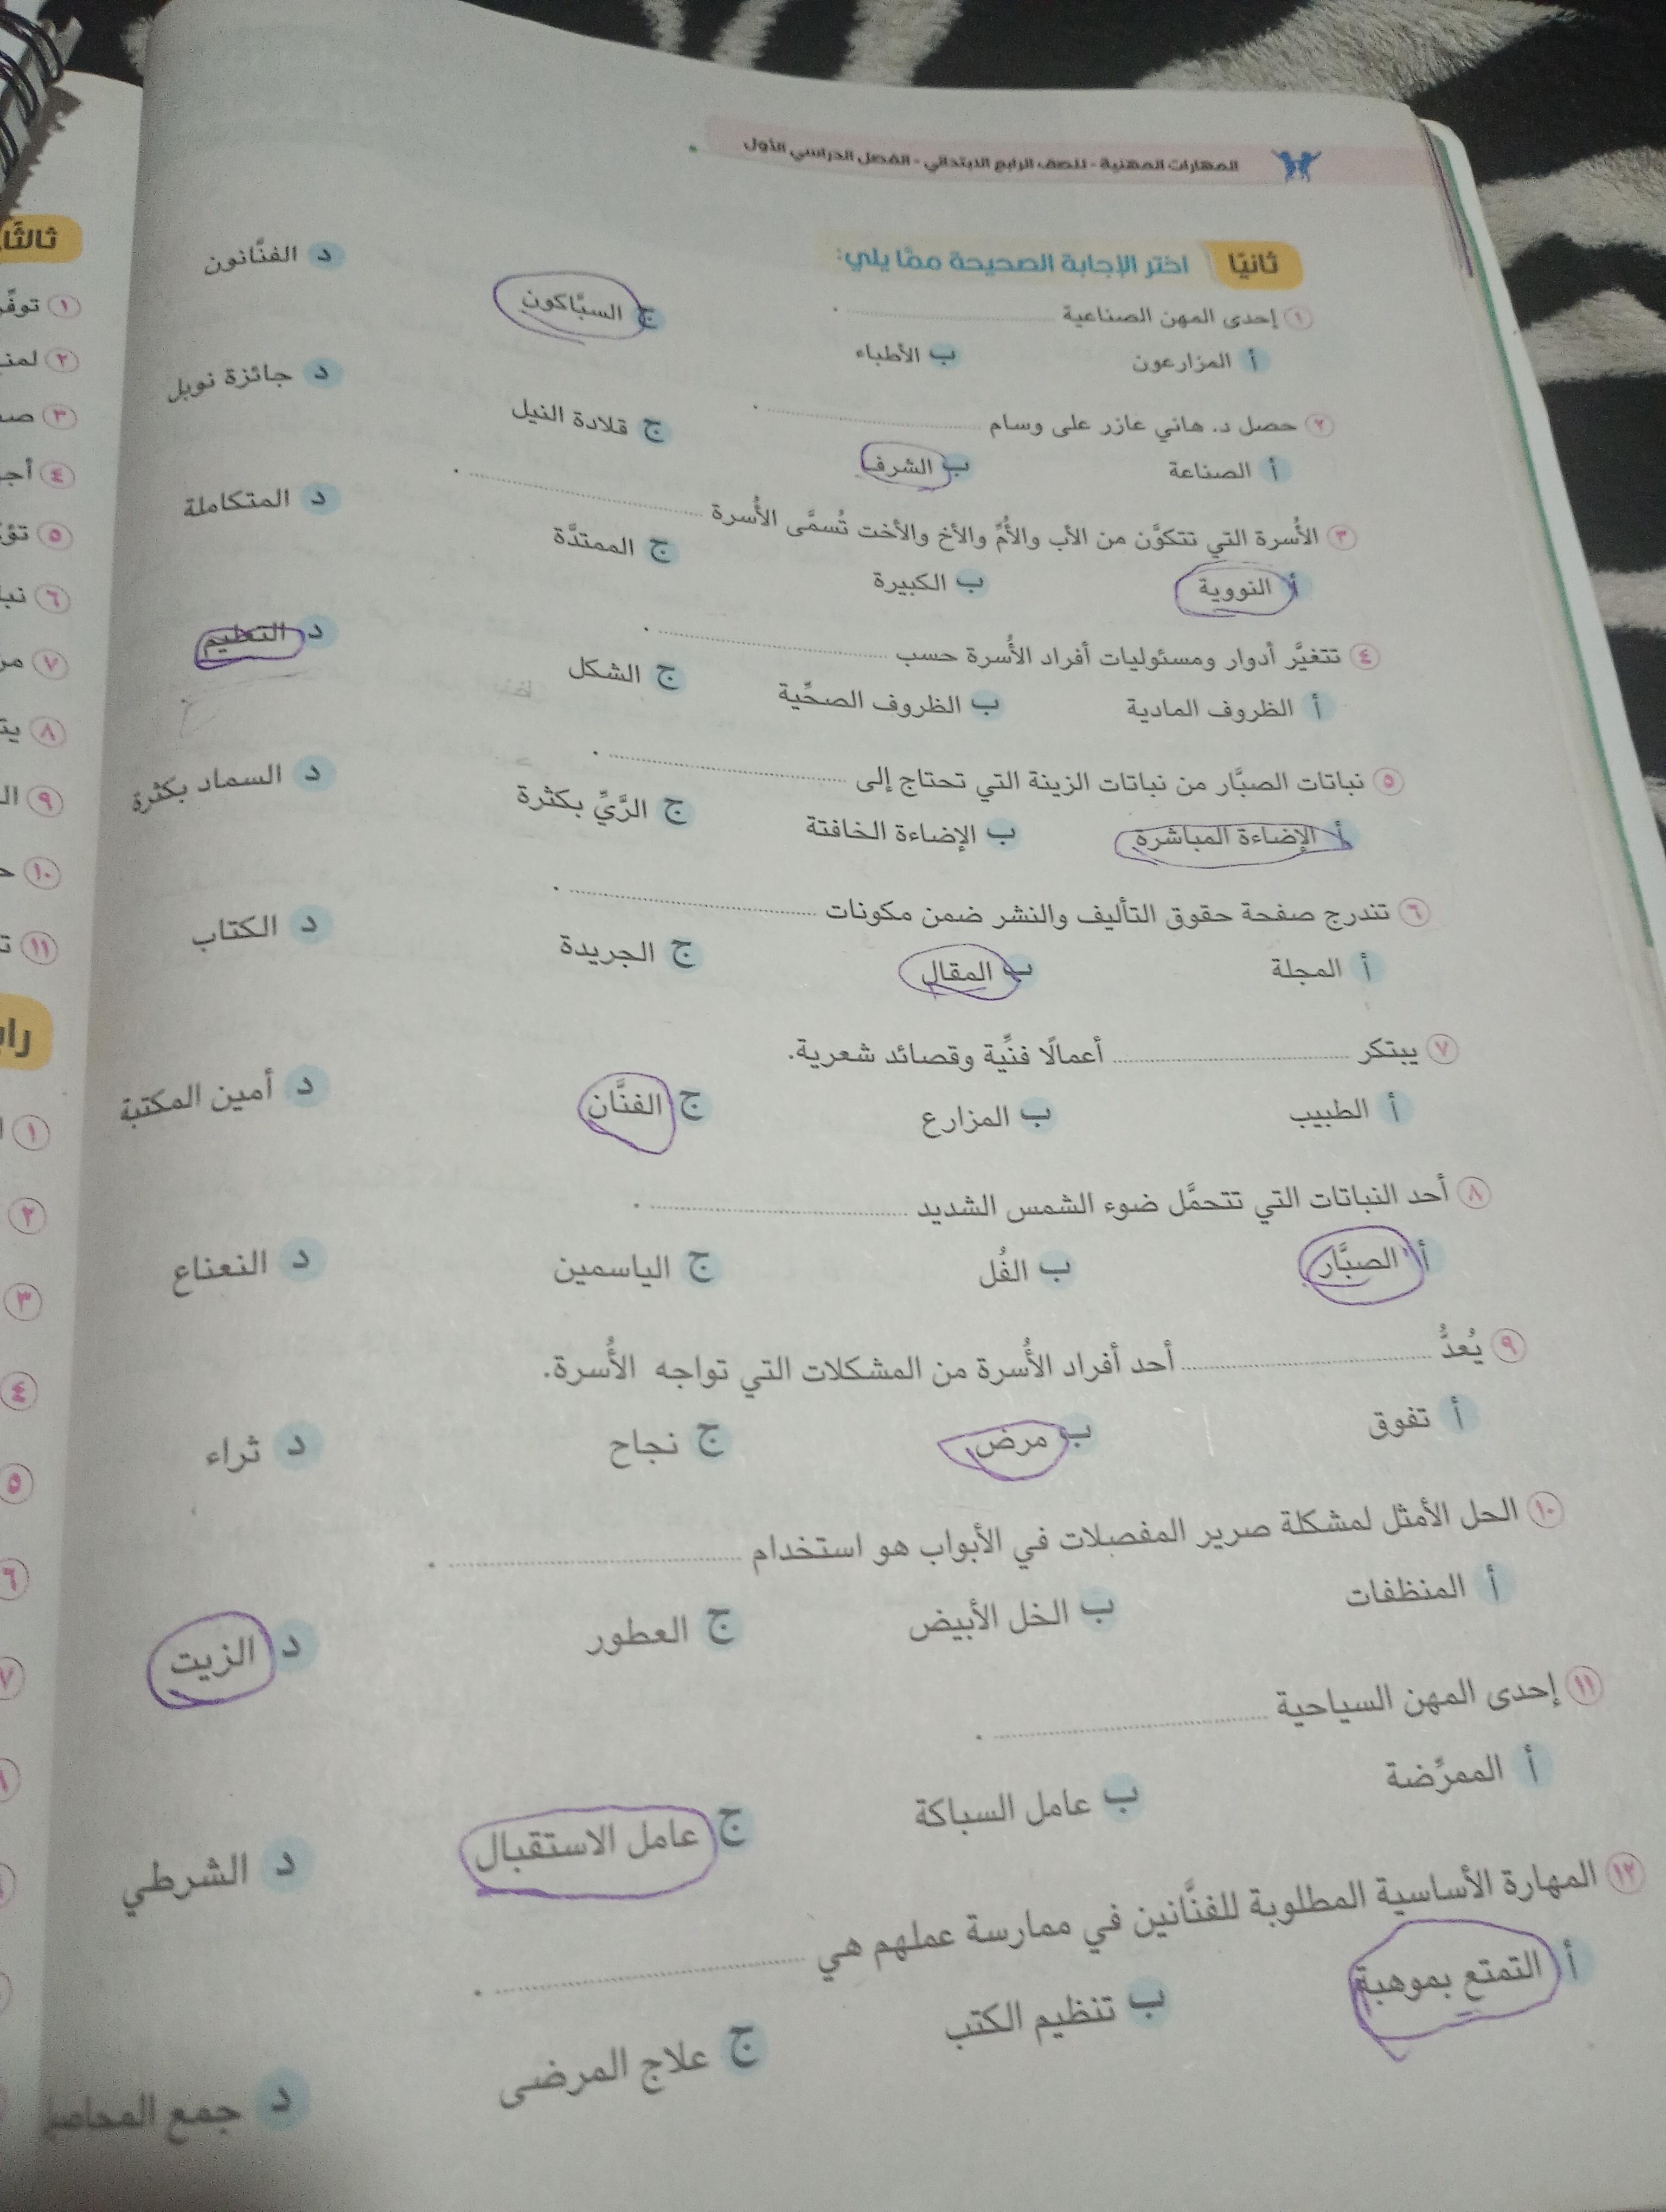 المهارات المهنية - للصف الرابع الابتدائي - الفصل الدراسي الأول
ثانيًا اختر الإجابة الصحيحة ممَّا يلي:
١ إحدى المهن الصناعية .
أ المزارعون ب الأطباء ج السبَّاكون د الفنَّانون
٢ حصل د. هاني عازر على وسام .
أ الصناعة ب الشرف ج قلادة النيل د جائزة نوبل
٣ الأُسرة التي تتكوَّن من الأب والأُمِّ والأخ والأخت تُسمَّى الأُسرة .
أ النووية ب الكبيرة ج الممتدَّة د المتكاملة
٤ تتغيَّر أدوار ومسئوليات أفراد الأُسرة حسب .
أ الظروف المادية ب الظروف الصحِّية ج الشكل د التعليم
٥ نباتات الصبَّار من نباتات الزينة التي تحتاج إلى .
أ الإضاءة المباشرة ب الإضاءة الخافتة ج الرَّيِّ بكثرة د السماد بكثرة
٦ تندرج صفحة حقوق التأليف والنشر ضمن مكونات .
أ المجلة ب المقال ج الجريدة د الكتاب
٧ يبتكر أعمالًا فنِّية وقصائد شعرية.
أ الطبيب ب المزارع ج الفنَّان د أمين المكتبة
٨ أحد النباتات التي تتحمَّل ضوء الشمس الشديد .
أ الصبَّار ب الفُل ج الياسمين د النعناع
٩ يُعدُّ أحد أفراد الأُسرة من المشكلات التي تواجه الأُسرة.
أ تفوق ب مرض ج نجاح د ثراء
١٠ الحل الأمثل لمشكلة صرير المفصلات في الأبواب هو استخدام .
أ المنظفات ب الخل الأبيض ج العطور د الزيت
١١ إحدى المهن السياحية .
أ الممرِّضة ب عامل السباكة ج عامل الاستقبال د الشرطي
١٢ المهارة الأساسية المطلوبة للفنَّانين في ممارسة عملهم هي .
أ التمتع بموهبة ب تنظيم الكتب ج علاج المرضى د جمع
ثالثًا
١
٢
٣
٤
٥
٦
٧
٨
٩
١٠
١١
١
٢
٣
٤
٥
٦
٧